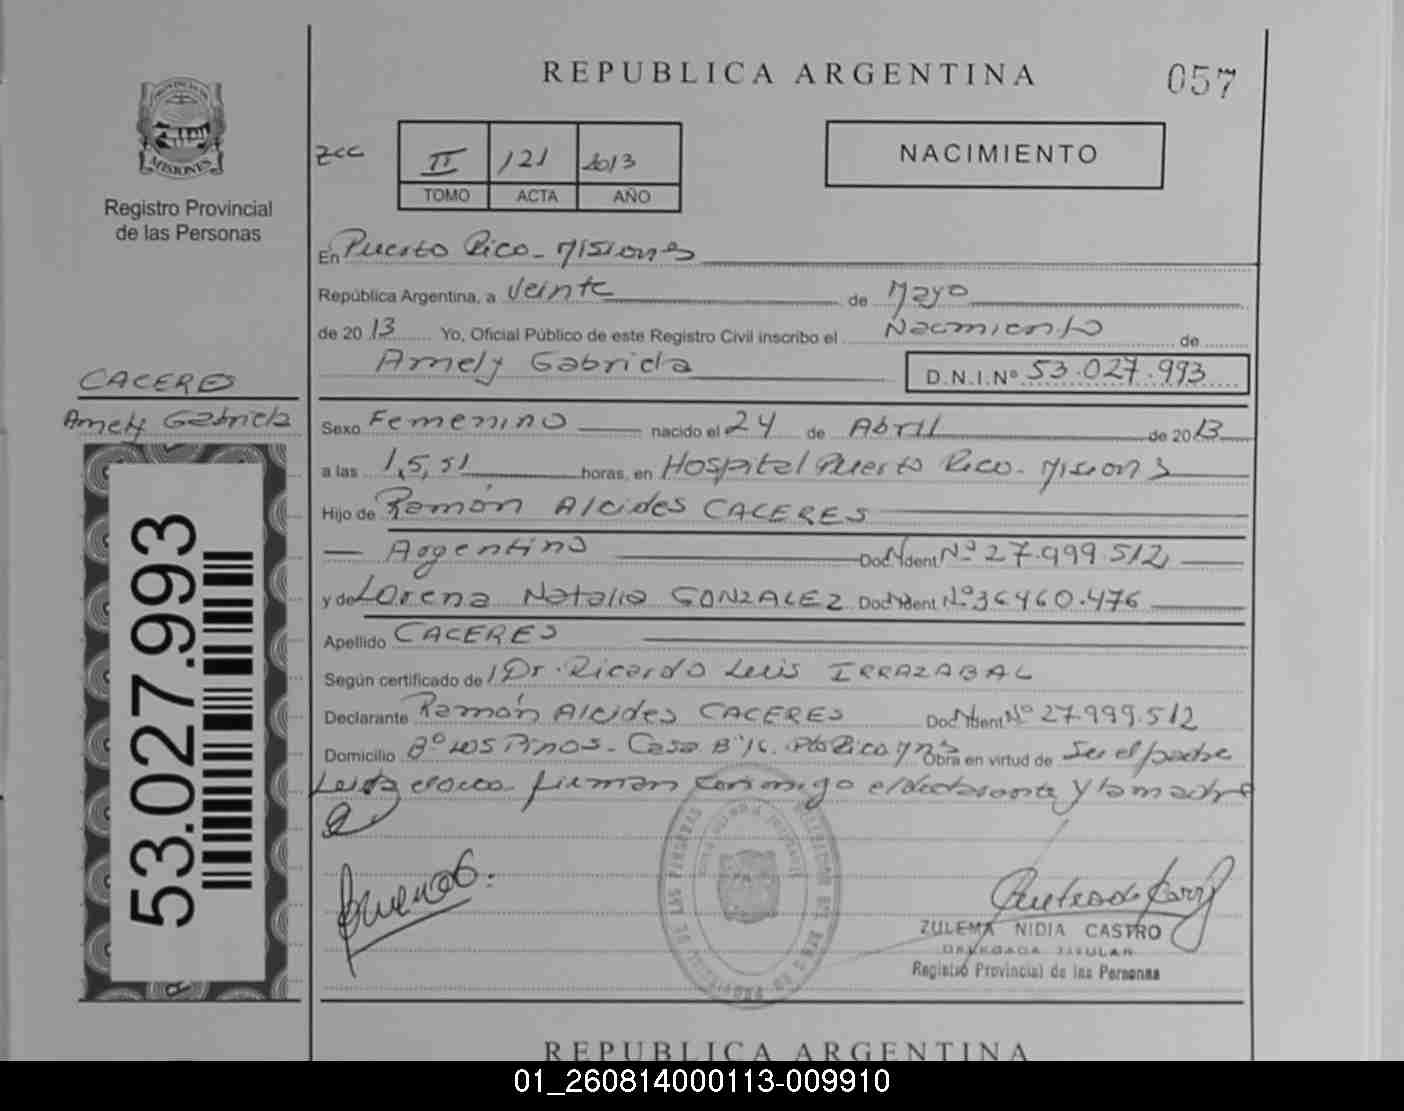 REPUBLICA ARGENTINA
057
PROVINCIA DE
MISIONES
Registro Provincial
de las Personas
zcc
II 121 2013
TOMO ACTA AÑO
NACIMIENTO
En Puerto Rico - Misiones
República Argentina, a Veinte de Mayo
de 2013 Yo, Oficial Público de este Registro Civil inscribo el Nacimiento de
Amely Gabriela
D.N.I.Nº 53.027.993
CACERES
Amely Gabriela
53.027.993
Sexo Femenino nacido el 24 de Abril de 2013
a las 15,51 horas, en Hospital Puerto Rico - Misiones
Hijo de Ramón Alcides CACERES
Argentino Doc. Ident. Nº 27.999.512
y de Lorena Natalia GONZALEZ Doc. Ident. Nº 36460.476
Apellido CACERES
Según certificado de Dr. Ricardo Luis IRRAZABAL
Declarante Ramón Alcides CACERES Doc. Ident. Nº 27.999.512
Domicilio Bº Los Pinos - Casa Pto Rico Mns Obra en virtud de Ser el padre
Leida el acta firman conmigo el declarante y la madre
ZULEMA NIDIA CASTRO
DELEGADA TITULAR
Registro Provincial de las Personas
REPUBLICA ARGENTINA
01_260814000113-009910